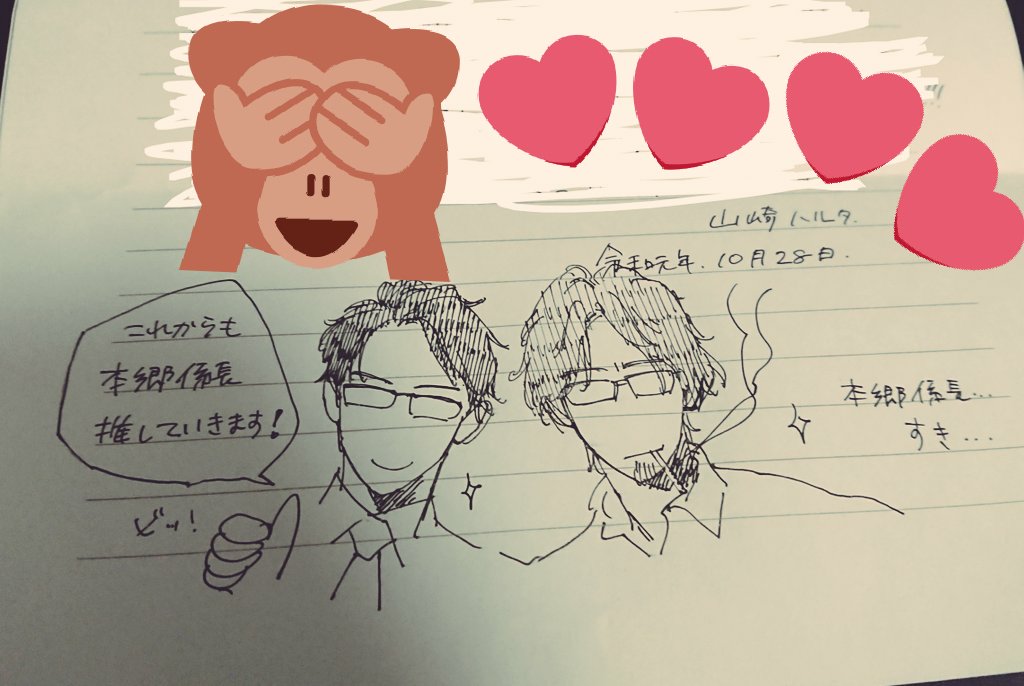 山崎ハルタ.
令和元年.10月28日.
これからも
本郷係長
推していきます!
ビッ!
本郷係長...
すき...